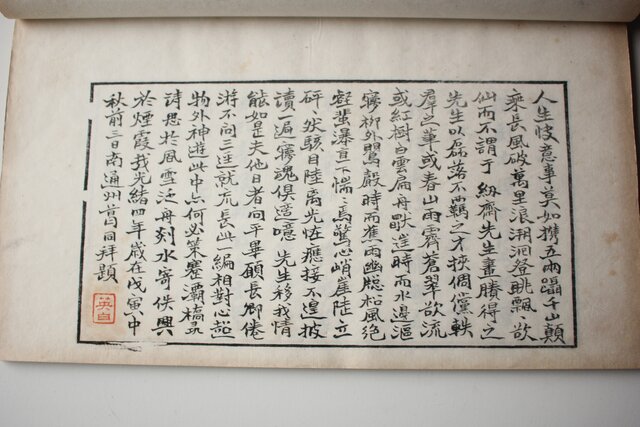 人生快意事莫如携五兩躡千山顛
乘長風破萬里浪溯洄登眺飄〻欲
仙而不謂于紉齋先生畫賸得之
先生以磊落不羈之才挾倜儻軼
羣之筆或春山雨霽蒼翠欲流
或紅樹白雲扁舟獸時而水邊漚
寤柳外鶯殿時而蕉雨幽牕松風絶
壑蜚瀑直下惴〻焉驚心峭崖陸立
砰〻然駭目陸离光怪應接不遑披
讀一遍寤魂俱適噫先生移我情
能如是夫他日者向平畢願長卿倦
游不問三逕就荒長此一編相對心超
物外神遊此中亦何必策蹇灞橋尋
詩思於風雪泛舟剡水寄佚興
於煙霞哉光緒四年歲在戊寅中
秋前三日南通州同拜題